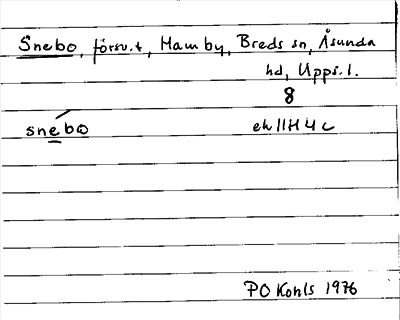 Snebo, försv.t, Hamby, Breds sn, Åsunda
hd, Upps.l.
8
snebo
ek 11H 4c
PO Kohls 1976